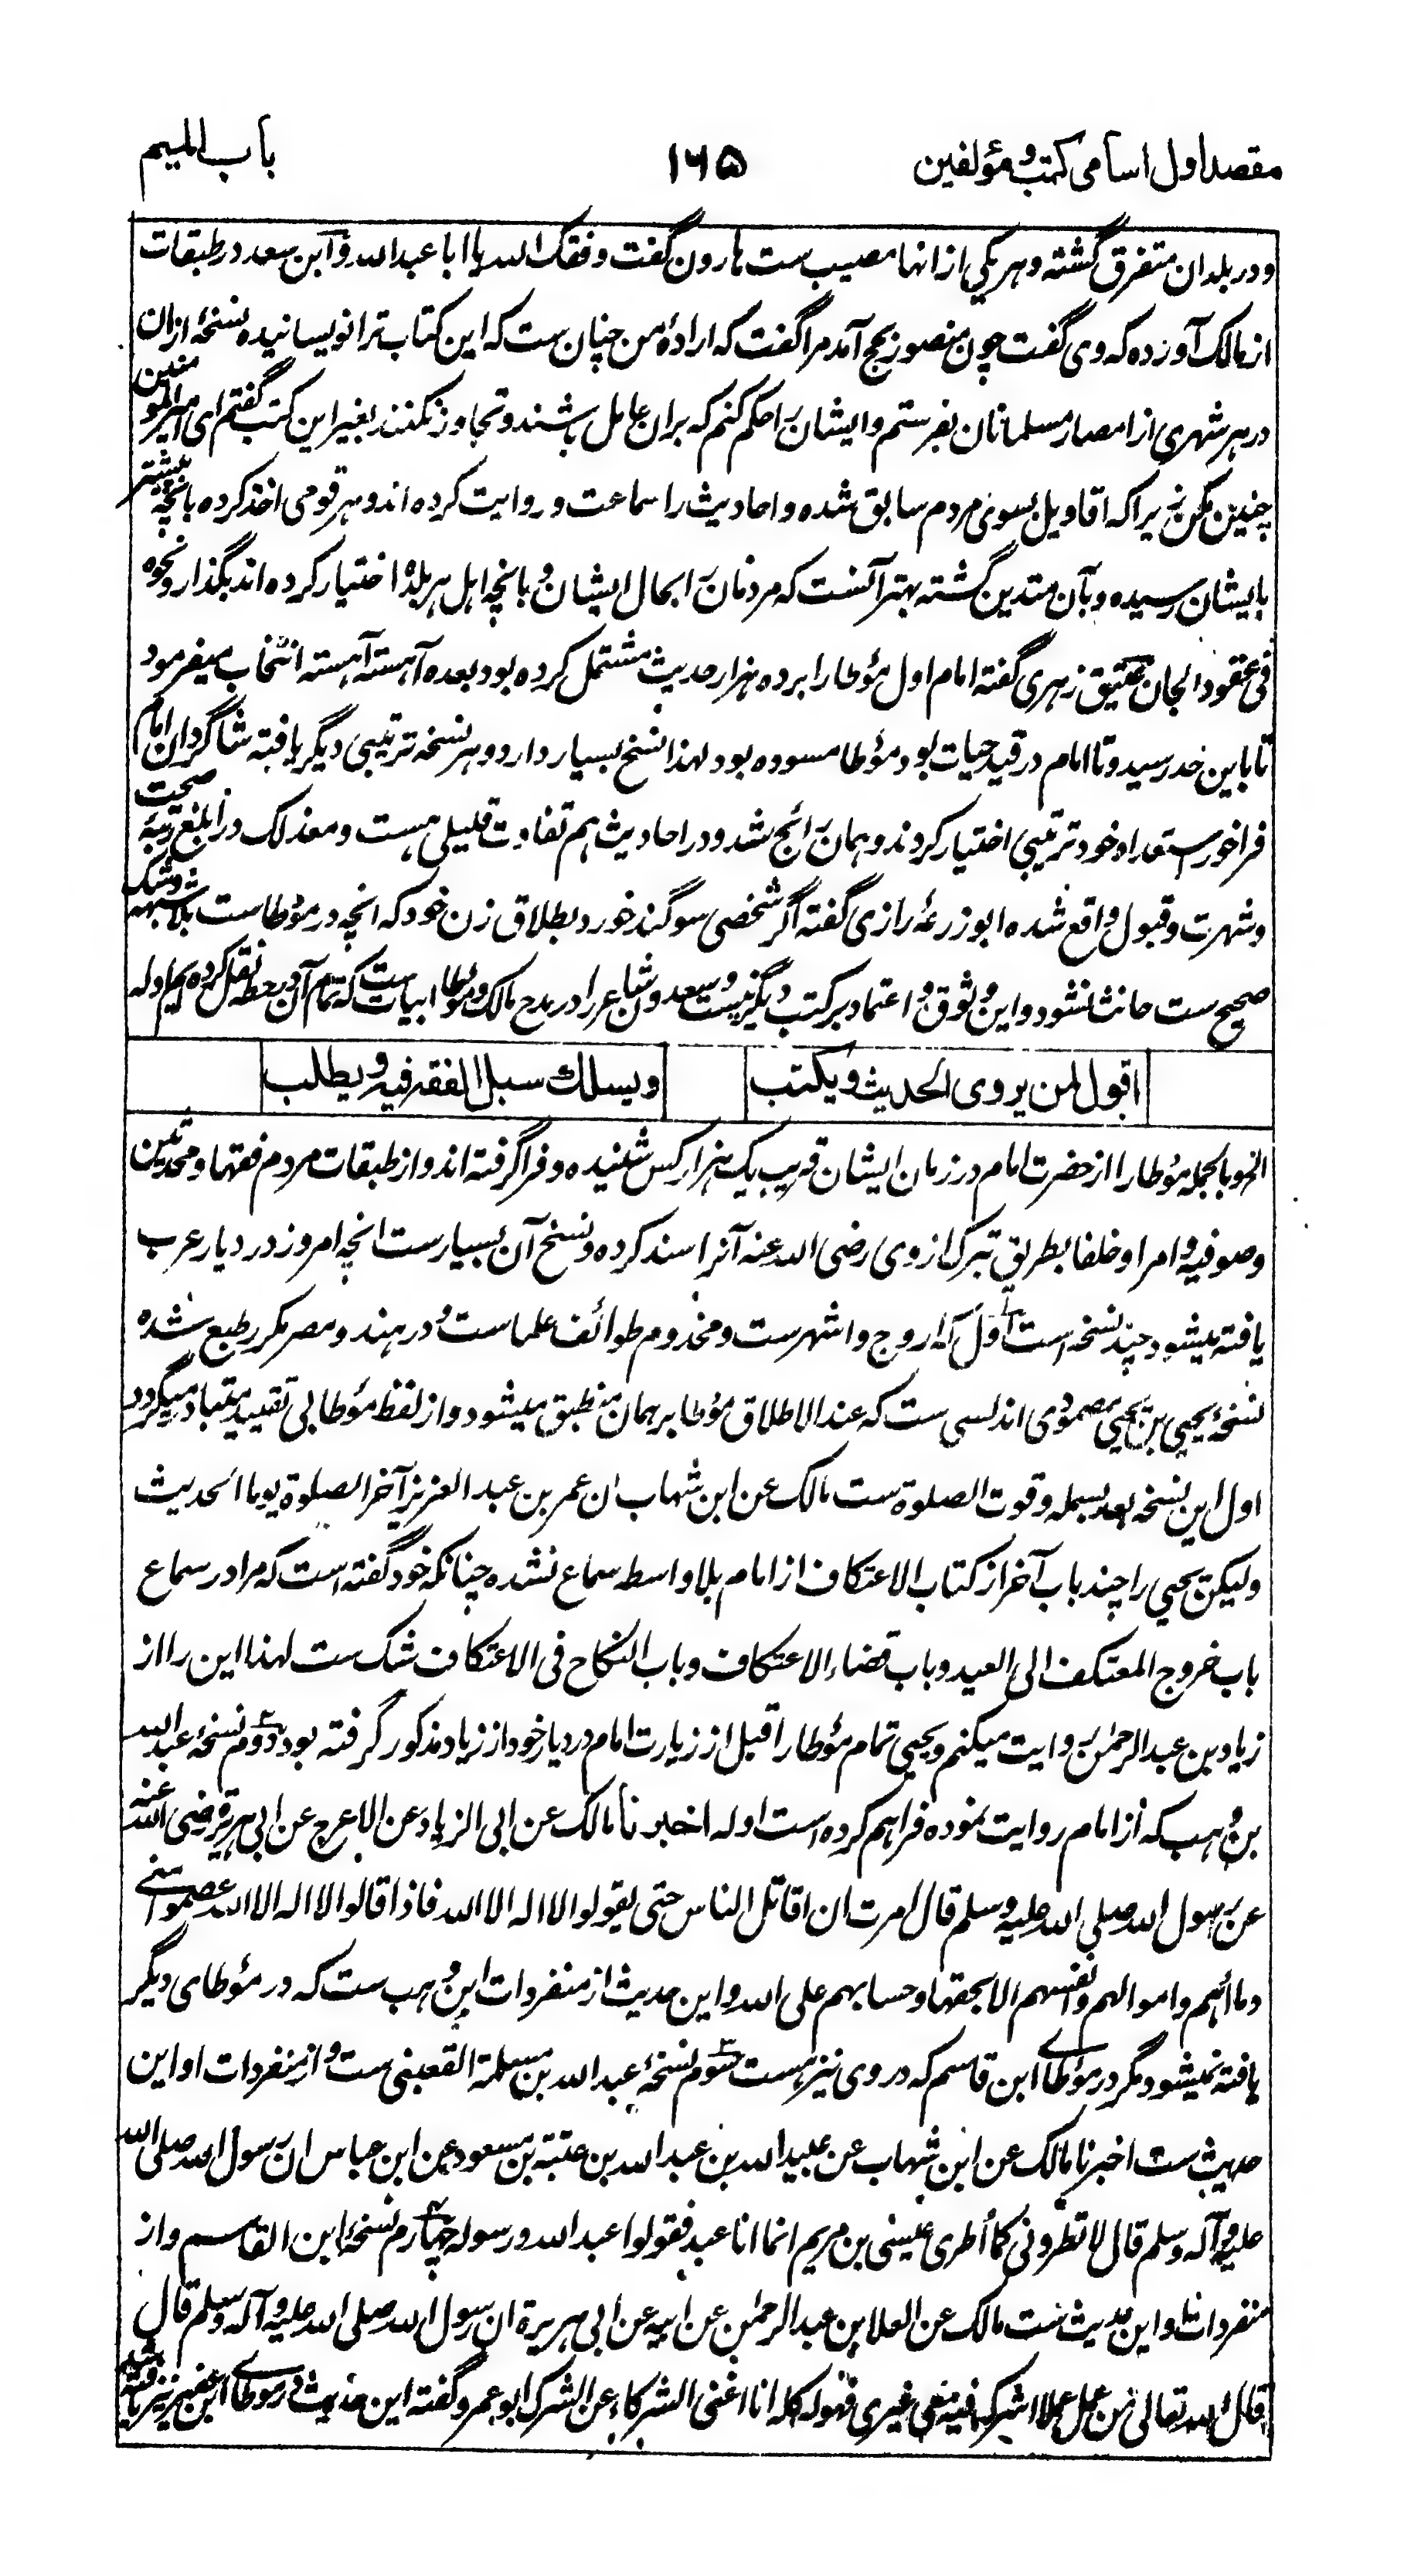 مقصد اول اسامی کتب و مؤلفین
۱۶۵
باب المیم
و در بلدان متفرق گشته و هر یکی از انها مصیب ست هارون گفت وفقک الله یا ابا عبدالله و ابن سعد در طبقات
از مالک آورده که وی گفت چون منصور بحج آمد مرا گفت که ارادهٔ من چنان ست که این کتاب ترا نویسانیده نسخهٔ ازان
در هر شهری از امصار مسلمانان بفرستم و ایشان را حکم کنم که بران عامل باشند و تجاوز نکنند بغیر این کتب گفتم ای امیر المؤمنین
چنین مکن زیرا که اقاویل بسوی مردم سابق شده و احادیث را سماعت و روایت کرده اند و هر قومی اخذ کرده بانچه پیشتر
بایشان رسیده و بآن متدین گشته بهتر آنست که مردمان را بحال ایشان و بانچه اهل هر بلدهٔ اختیار کرده اند بگذار و نحوه
فی عقود الجمان عتیق زهری گفته امام اول مؤطا را بر ده هزار حدیث مشتمل کرده بود بعده آهسته آهسته انتخاب میفرمود
تا باین حد رسید و تا امام در قید حیات بود مؤطا مسوده بود لهذا نسخ بسیار دارد و هر نسخه ترتیبی دیگر یافته شاگردان امام
فراخور استعداد خود ترتیبی اختیار کردند و همان رائج شد و در احادیث هم تفاوت قلیلی هست و معذلک در ابلغ رتبهٔ صحت
و شهرت و قبول واقع شده ابو زرعهٔ رازی گفته اگر شخصی سوگند خورد بطلاق زن خود که انچه در مؤطاست بلا شبهه و شک
صحیح ست حانث نشود و این وثوق و اعتماد بر کتب دیگر نیست و سعدون شاعر را در مدح مالک و مؤطا ابیات ست که تمام آن در حطه نقل کرده ایم اوله
اقول لمن یروی الحدیث ویکتب
ویسلک سبل الفقه فیه ویطلب
الخ و بالجمله مؤطا را از حضرت امام در زمان ایشان قریب یک هزار کس شنیده و فرا گرفته اند و از طبقات مردم فقها و محدثین
و صوفیه و امرا و خلفا بطریق تبرک از وی رضی الله عنه آنرا سند کرده و نسخ آن بسیار ست انچه امروز در دیار عرب
یافته میشود چند نسخه است اول که اروج و اشهرست و مخدوم طوائف علماست و در هند و مصر مکرر طبع شده
نسخهٔ یحیی بن یحیی مصمودی اندلسی ست که عند الاطلاق مؤطا بر همان منطبق میشود و از لفظ مؤطا بی تقیید متبادر میگردد
اول این نسخه بعد بسمله وقوت الصلوة ست مالک عن ابن شهاب ان عمر بن عبد العزیز آخر الصلوة یوما الحدیث
ولیکن یحیی را چند باب آخر از کتاب الاعتکاف از امام بلا واسطه سماع نشده چنانکه خود گفته است که مرا در سماع
باب خروج المعتکف الی العید و باب قضاء الاعتکاف و باب النکاح فی الاعتکاف شک ست لهذا این را از
زیاد بن عبد الرحمن روایت میکنم و یحیی تمام مؤطا را قبل از زیارت امام در دیار خود از زیاد مذکور گرفته بود دوم نسخهٔ عبد الله
بن وهب که از امام روایت نموده فراهم کرده است اوله اخبرنا مالک عن ابی الزیاد عن الاعرج عن ابی هریرة رضی الله عنه
عن رسول الله صلی الله علیه وسلم قال امرت ان اقاتل الناس حتی یقولوا لا اله الا الله فاذا قالوا لا اله الا الله عصموا منی
دمائهم واموالهم وانفسهم الا بحقها وحسابهم علی الله و این حدیث از منفردات ابن وهب ست که در مؤطای دیگر
یافته نمیشود مگر در مؤطای ابن قاسم که در وی نیز هست سوم نسخهٔ عبد الله بن مسلمة القعنبی ست و از منفردات او این
حدیث ست اخبرنا مالک عن ابن شهاب عن عبید الله بن عبد الله بن عتبة بن مسعود عن ابن عباس ان رسول الله صلی الله
علیه وآله وسلم قال لا تطرونی کما أطری عیسی بن مریم انما انا عبد فقولوا عبد الله ورسوله چهارم نسخهٔ ابن القاسم و از
منفردات او این حدیث ست مالک عن العلا بن عبد الرحمن عن ابیه عن ابی هریرة ان رسول الله صلی الله علیه وآله وسلم قال
قال الله تعالی من عمل عملا اشرک فیه معی غیری فهو له کله انا اغنی الشرکاء عن الشرک ابو عمر و گفته این حدیث در مؤطای ابن عفیر نیز یافته شد